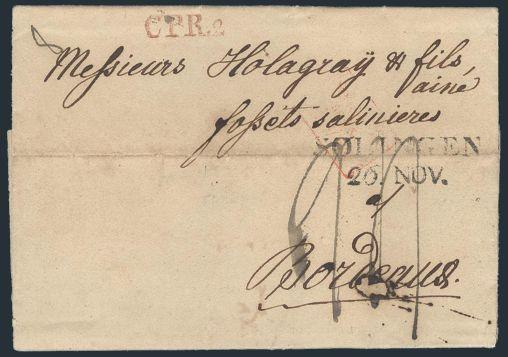 CPR.2
Messieurs Hölagraÿ & fils,
ainé
fossèts salinieres
SOLINGEN
26. NOV.
a
Bordeaux.